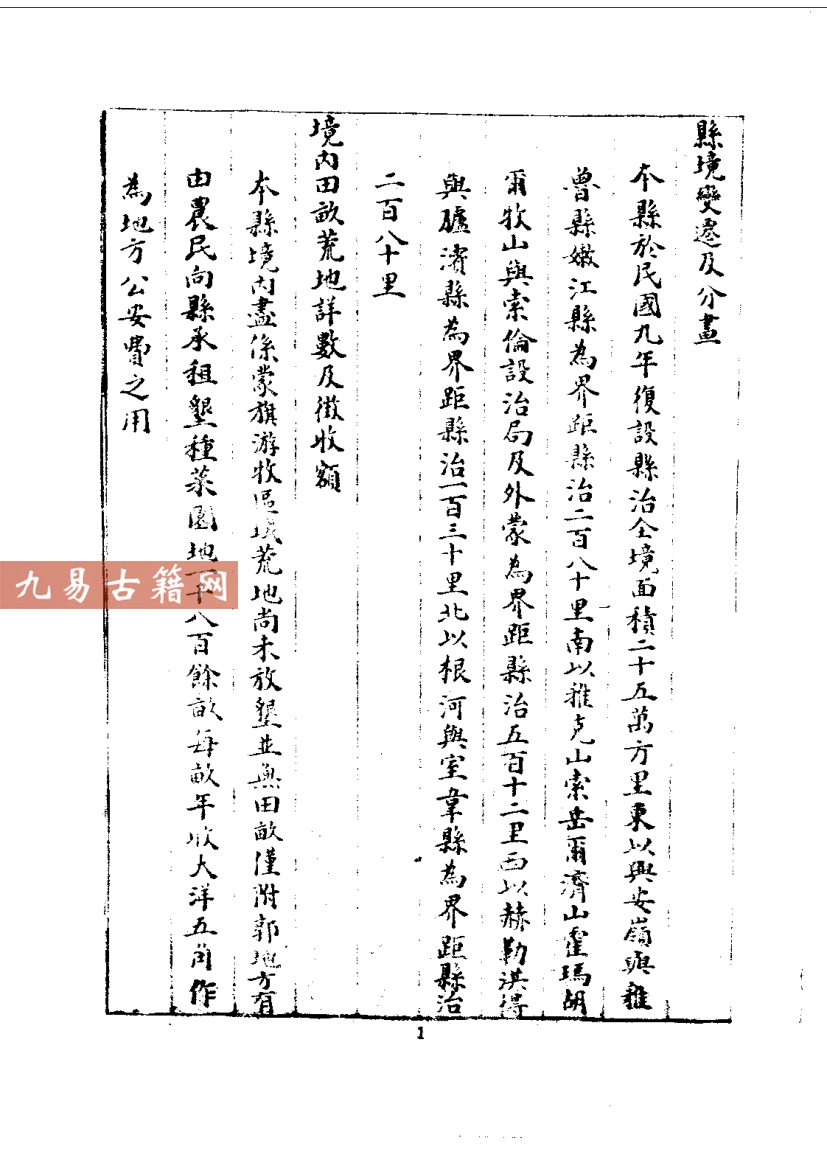 縣境變遷及分畫
本縣於民國九年復設縣治全境面積二十五萬方里東以興安嶺與雅
魯縣嫩江縣為界距縣治二百八十里南以雅克山索岳爾濟山霍瑪胡
爾牧山與索倫設治局及外蒙為界距縣治五百十二里西以赫勒洪得
與臚濱縣為界距縣治一百三十里北以根河與室韋縣為界距縣治
二百八十里
境內田畝荒地詳數及徵收額
本縣境內盡係蒙旗游牧區域荒地尚未放墾並無田畝僅附郭地方有
由農民向縣承租墾種菜園地一千八百餘畝每畝年收大洋五角作
為地方公安費之用
九易古籍网
1